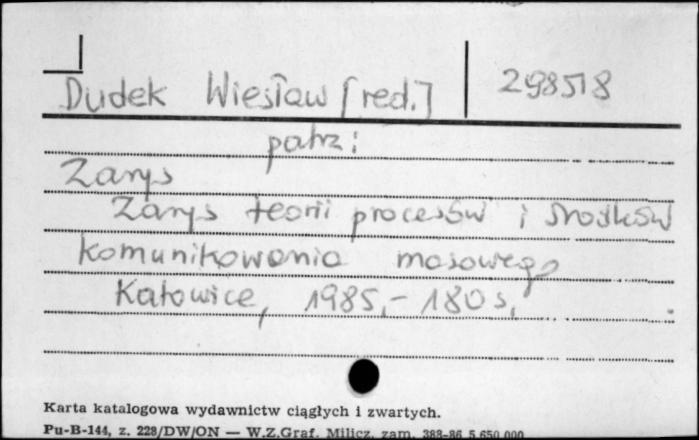 Dudek Wiesław [red.] 298518
patrz:
Zarys
Zarys teorii procesów i środków
komunikowania masowego
Katowice, 1985,- 180 s.
Karta katalogowa wydawnictw ciągłych i zwartych.
Pu-B-144, z. 228/DW/ON — W.Z.Graf. Milicz, zam. 388-86 5 650 000